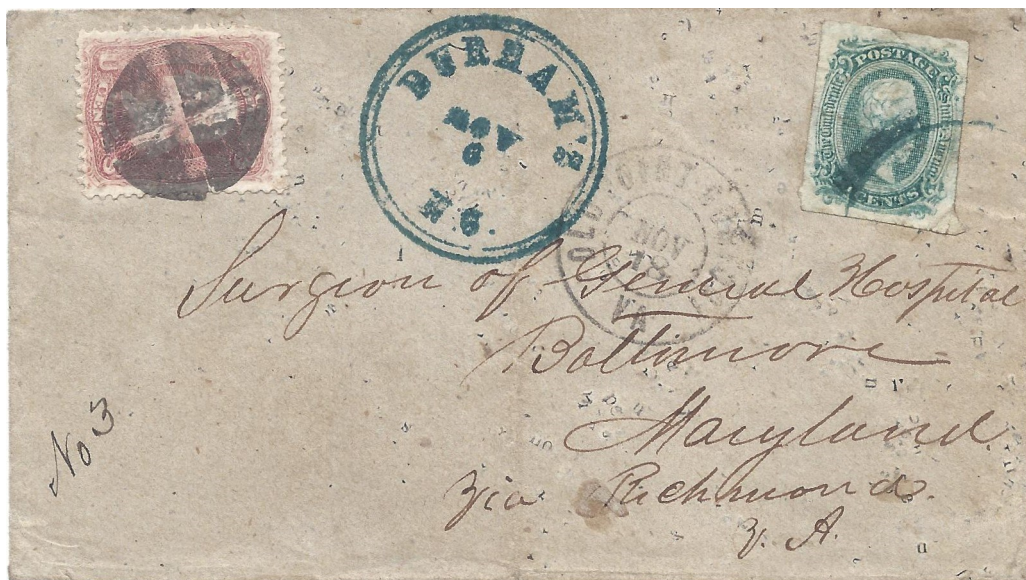 DURHAM'S
NOV
6
N.C.
POSTAGE
CENTS
OLD POINT COMFORT
NOV
18
VA
Surgion of General Hospital
Baltimore
Maryland
Via Richmond
V. A.
No 3